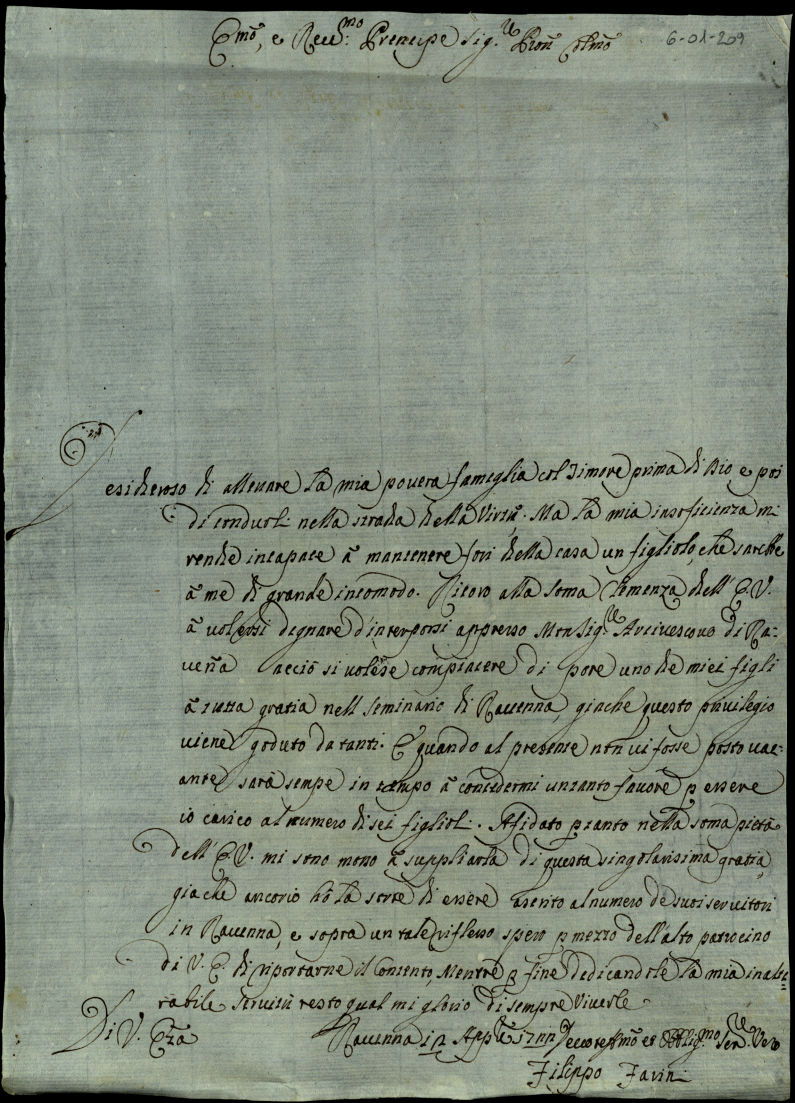 Emõ, e Reu.mo Prencipe Sig.re Prõn Colmõ
6-01-209
Desideroso di alleuare la mia pouera fameglia col Timore prima di Dio e poi
di condurli nella strada della Virtù. Ma la mia insoficienza mi
rende incapace à mantenere fori della casa un figliolo, che sarebbe
à me di grande incomodo. Ricoro alla soma Clemenza dell' E.V.
à volersi degnare d'interporsi appresso Monsig.re Arciuescouo di Ra:
ueña acciò si volesse compiacere di pore uno de miei figli
à tutta gratia nell Seminario di Rauenna, giache questo priuilegio
viene goduto da tanti. E quando al presente non ui fosse posto uac:
ante sarà sempe in tempo à concedermi un tanto fauore p essere
io carico al numero di sei figlioli. Afidato p tanto nella soma pietà
dell' E.V. mi sono moso à suppliarla di questa singolarisima gratia,
gia che ancorio hò la sorte di essere asento al numero de suoi seruitori
in Rauenna, e sopra un tale riflesso spero p mezzo dell'alto patrocino
di V. E. di riportarne il Contento, Mentre p fine dedicandole la mia inalte:
rabile seruitù resto qual mi glorio di sempre Viuerle
Di V. Ezã
Rauenna Obblig.mo Ser.re Vero
Filippo Favini